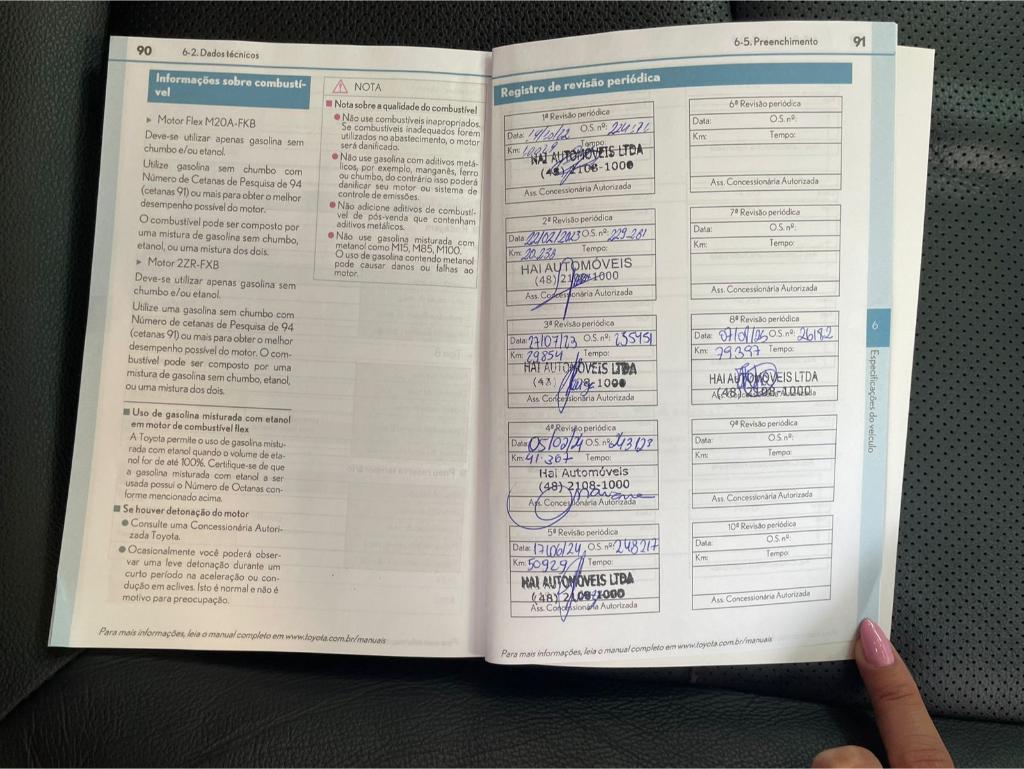 90
6-2. Dados técnicos
Informações sobre combustí-
vel
▶ Motor Flex M20A-FKB
Deve-se utilizar apenas gasolina sem
chumbo e/ou etanol.
Utilize gasolina sem chumbo com
Número de Cetanas de Pesquisa de 94
(cetanas 91) ou mais para obter o melhor
desempenho possível do motor.
O combustível pode ser composto por
uma mistura de gasolina sem chumbo,
etanol, ou uma mistura dos dois.
▶ Motor 2ZR-FXB
Deve-se utilizar apenas gasolina sem
chumbo e/ou etanol.
Utilize uma gasolina sem chumbo com
Número de cetanas de Pesquisa de 94
(cetanas 91) ou mais para obter o melhor
desempenho possível do motor. O com-
bustível pode ser composto por uma
mistura de gasolina sem chumbo, etanol,
ou uma mistura dos dois.
■ Uso de gasolina misturada com etanol
em motor de combustível flex
A Toyota permite o uso de gasolina mistu-
rada com etanol quando o volume de eta-
nol for de até 100%. Certifique-se de que
a gasolina misturada com etanol a ser
usada possui o Número de Octanas con-
forme mencionado acima.
■ Se houver detonação do motor
● Consulte uma Concessionária Autori-
zada Toyota.
● Ocasionalmente você poderá obser-
var uma leve detonação durante um
curto período na aceleração ou con-
dução em aclives. Isto é normal e não é
motivo para preocupação.
NOTA
■ Nota sobre a qualidade do combustível
● Não use combustíveis inapropriados.
Se combustíveis inadequados forem
utilizados no abastecimento, o motor
será danificado.
● Não use gasolina com aditivos metá-
licos, por exemplo, manganês, ferro
ou chumbo, do contrário isso poderá
danificar seu motor ou sistema de
controle de emissões.
● Não adicione aditivos de combustí-
vel de pós-venda que contenham
aditivos metálicos.
● Não use gasolina misturada com
metanol como M15, M85, M100.
O uso de gasolina contendo metanol
pode causar danos ou falhas ao
motor.
Para mais informações, leia o manual completo em www.toyota.com.br/manuais
6-5. Preenchimento
91
Registro de revisão periódica
1ª Revisão periódica
Data: O.S. nº:
Km: Tempo:
HAI AUTOMÓVEIS LTDA
(48) 2108-1000
Ass. Concessionária Autorizada
2ª Revisão periódica
Data: 22/02/2023 O.S. nº: 229-281
Km: 20.238 Tempo:
HAI AUTOMÓVEIS
(48) 2108-1000
Ass. Concessionária Autorizada
3ª Revisão periódica
Data: 27/07/23 O.S. nº:
Km: 29854 Tempo:
HAI AUTOMÓVEIS LTDA
(48) 2108-1000
Ass. Concessionária Autorizada
4ª Revisão periódica
Data: 05/02/24 O.S. nº: 243123
Km: 41.367 Tempo:
Hai Automóveis
(48) 2108-1000
Ass. Concessionária Autorizada
5ª Revisão periódica
Data: 17/06/24 O.S. nº: 248217
Km: 50929 Tempo:
HAI AUTOMÓVEIS LTDA
(48) 2108-1000
Ass. Concessionária Autorizada
6ª Revisão periódica
Data: O.S. nº:
Km: Tempo:
Ass. Concessionária Autorizada
7ª Revisão periódica
Data: O.S. nº:
Km: Tempo:
Ass. Concessionária Autorizada
8ª Revisão periódica
Data: O.S. nº:
Km: 79397 Tempo:
HAI AUTOMÓVEIS LTDA
(48) 2108-1000
Ass. Concessionária Autorizada
9ª Revisão periódica
Data: O.S. nº:
Km: Tempo:
Ass. Concessionária Autorizada
10ª Revisão periódica
Data: O.S. nº:
Km: Tempo:
Ass. Concessionária Autorizada
6
Especificações do veículo
Para mais informações, leia o manual completo em www.toyota.com.br/manuais